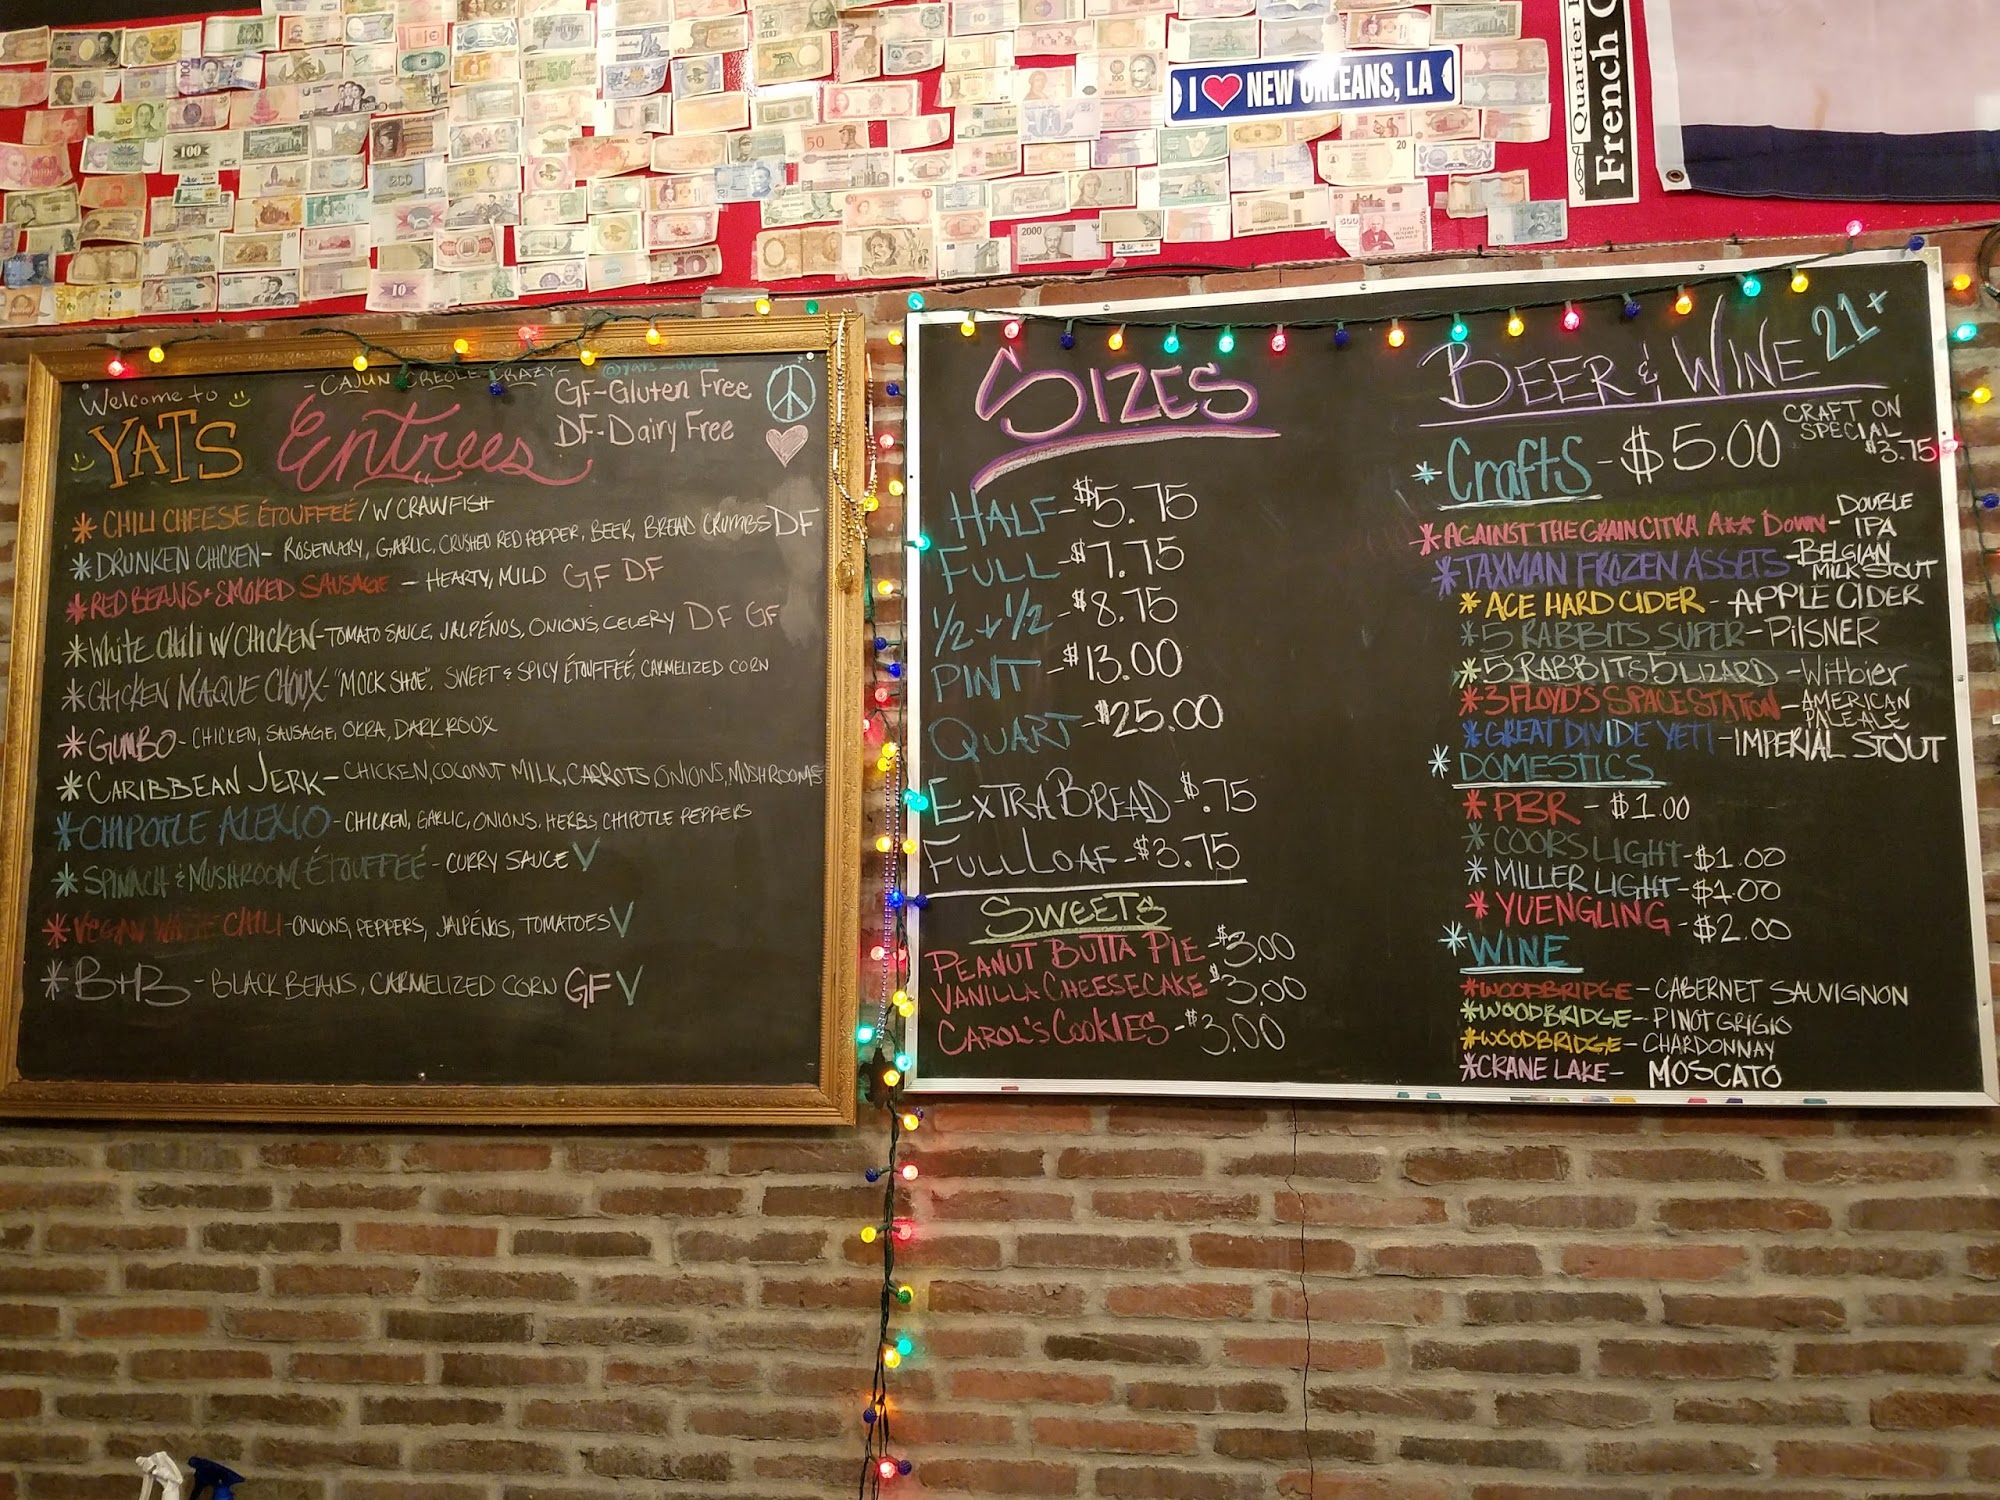 I ♥ NEW ORLEANS, LA
Quartier
French
Welcome to
YATS
- CAJUN CREOLE CRAZY -
Entrees
GF-Gluten Free
DF-Dairy Free
* CHILI CHEESE ÉTOUFFEÉ/W CRAWFISH
* DRUNKEN CHICKEN- ROSEMARY, GARLIC, CRUSHED RED PEPPER, BEER, BREAD CRUMBS DF
* RED BEANS + SMOKED SAUSAGE - HEARTY, MILD GF DF
* WHITE CHILI W/ CHICKEN-TOMATO SAUCE, JALPÉNOS, ONIONS, CELERY DF GF
* CHICKEN MAQUE CHOUX-"MOCK SHOE", SWEET & SPICY ÉTOUFFEÉ, CARMELIZED CORN
* GUMBO - CHICKEN, SAUSAGE, OKRA, DARK ROUX
* CARIBBEAN JERK-CHICKEN, COCONUT MILK, CARROTS ONIONS, MUSHROOMS
* CHIPOTLE ALEXIO - CHICKEN, GARLIC, ONIONS, HERBS, CHIPOTLE PEPPERS
* SPINACH & MUSHROOM ÉTOUFFEÉ - CURRY SAUCE V
* VEGAN WHITE CHILI-ONIONS, PEPPERS, JALPÉNOS, TOMATOES V
* B+B - BLACK BEANS, CARMELIZED CORN GF V
SIZES
HALF-$5.75
FULL-$7.75
1/2 + 1/2 - $8.75
PINT-$13.00
QUART-$25.00
EXTRA BREAD-$.75
FULL LOAF-$3.75
SWEETS
PEANUT BUTTA PIE-$3.00
VANILLA CHEESECAKE $3.00
CAROL'S COOKIES-$3.00
BEER & WINE 21+
* Crafts - $5.00 CRAFT ON
SPECIAL
$3.75
* AGAINST THE GRAIN CITRA A** DOWN-DOUBLE
IPA
* TAXMAN FROZEN ASSETS-BELGIAN
MILK STOUT
* ACE HARD CIDER-APPLE CIDER
* 5 RABBITS SUPER-PILSNER
* 5 RABBITS 5 LIZARD-Witbier
* 3 FLOYD'S SPACE STATION-AMERICAN
PALE ALE
* GREAT DIVIDE YETI-IMPERIAL STOUT
* DOMESTICS
* PBR - $1.00
* COORS LIGHT-$1.00
* MILLER LIGHT-$1.00
* YUENGLING - $2.00
* WINE
* WOODBRIDGE-CABERNET SAUVIGNON
* WOODBRIDGE-PINOT GRIGIO
* WOODBRIDGE-CHARDONNAY
* CRANE LAKE- MOSCATO